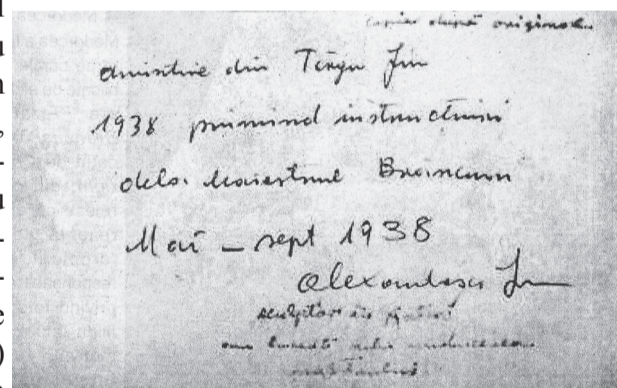 copie după originalu
amintire din Tîrgu Jiu
1938 primind instructiuni
dela Maiestrul Brancusi
Mai – sept 1938
Alexandescu I
sculptor in piatră
am lucrat sub conducerea